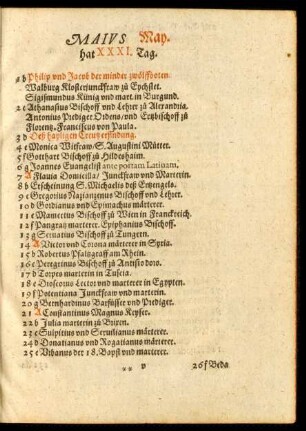 MAIVS May.
hat XXXI. Tag.
1 b Philip vnd Jacob der minder zwölffboten.
Walburg Klosterjunckfraw zů Eychstet.
Sigismundus Künig vnd mart. in Burgund.
2 c Athanasius Bischoff vnd Lehrer zů Alexandria.
Antonius Prediger Ordens / vnd Ertzbischoff zů
Florentz. Franciscus von Paula.
3 d Deß hayligen Creutz erfindung.
4 e Monica Witfraw / S. Augustini Můtter.
5 f Gotthart Bischoff zů Hildesheim.
6 g Joannes Euangelist ante portam Latinam.
7 A Flauia Domicilla / Junckfraw vnd Marterin.
8 b Erscheinung S. Michaelis deß Ertzengels.
9 c Gregorius Nazianzenus Bischoff vnd Lehrer.
10 d Gordianus vnd Epimachus märterer.
11 e Mamertus Bischoff zů Wien in Franckreich.
12 f Pangratz marterer. Epiphanius Bischoff.
13 g Seruatius Bischoff zů Tungern.
14 A Victor vnd Corona märterer in Syria.
15 b Robertus Pfaltzgraff am Rhein.
16 c Peregrinus Bischoff zů Antisiodoro.
17 d Torpes marterer in Tuscia.
18 e Dioscorus Lector vnd marterer in Egypten.
19 f Potentiana Junckfraw vnd marterin.
20 g Bernhardinus Barfůsser vnd Prediger.
21 A Constantinus Magnus Keyser.
22 b Julia marterin zů Brixen.
23 c Sulpitius vnd Seruilianus märterer.
24 d Donatianus vnd Rogatianus märterer.
25 e Vrbanus der 18. Bapst vnd marterer.
** v 26 f Beda